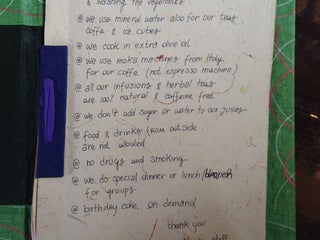 & washing the vegetables
@ we use mineral water also for our teas
coffe & ice cubes
@ we cook in extra olive oil
@ we use moka machines from Italy
for our coffe (not espresso machine)
@ all our infusions & herbal teas
are 100% natural & caffeine free
@ we don't add sugar or water to our juices
@ food & drinks from outside
are not allowed
@ no drugs and smoking
@ we do special dinner or lunch/
for groups
@ birthday cake on demand
thank you